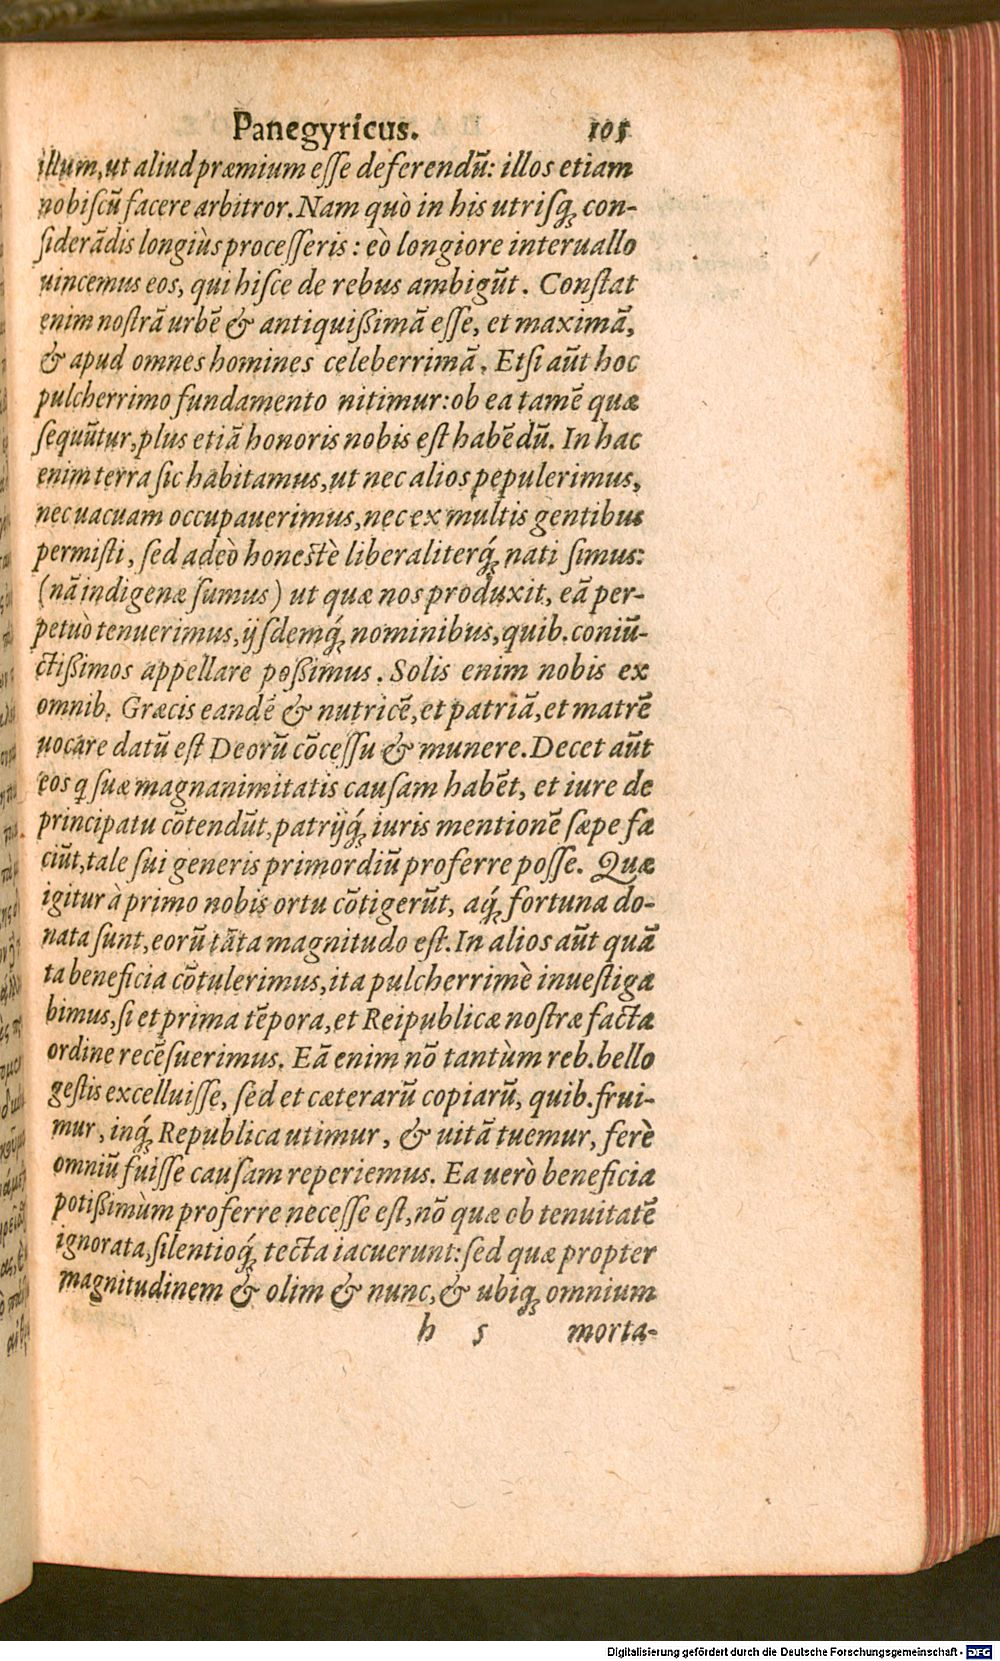 Panegyricus. 105
illum, ut aliud præmium eſſe deferendū: illos etiam
nobiſcū facere arbitror. Nam quò in his utriſq́; con-
ſiderādis longiùs proceſſeris: eò longiore interuallo
uincemus eos, qui hiſce de rebus ambigūt. Conſtat
enim noſtrā urbē & antiquißimā eſſe, et maximā,
& apud omnes homines celeberrimā. Etſi aūt hoc
pulcherrimo fundamento nitimur: ob ea tamē quæ
ſequūtur, plus etiā honoris nobis eſt habēdū. In hac
enim terra ſic habitamus, ut nec alios pepulerimus,
nec uacuam occupauerimus, nec ex multis gentibus
permiſti, ſed adeò honeſtè liberaliterq́; nati ſimus:
(nā indigenæ ſumus) ut quæ nos produxit, eā per-
petuò tenuerimus, ijſdemq́; nominibus, quib. coniū-
ctißimos appellare poßimus. Solis enim nobis ex
omnib. Græcis eandē & nutricē, et patriā, et matrē
uocare datū eſt Deorū cōceſſu & munere. Decet aūt
eos q ſuæ magnanimitatis cauſam habēt, et iure de
principatu cōtendūt, patrijq́; iuris mentionē ſæpe fa
ciūt, tale ſui generis primordiū proferre poſſe. Quæ
igitur à primo nobis ortu cōtigerūt, aq́; fortuna do-
nata ſunt, eorū tāta magnitudo eſt. In alios aūt quā
ta beneficia cōtulerimus, ita pulcherrimè inueſtiga
bimus, ſi et prima tēpora, et Reipublicæ noſtræ facta
ordine recēſuerimus. Eā enim nō tantùm reb. bello
geſtis excelluiſſe, ſed et cæterarū copiarū, quib. frui-
mur, inq́; Republica utimur, & uitā tuemur, ferè
omniū fuiſſe cauſam reperiemus. Ea uerò beneficia
potißimùm proferre neceſſe eſt, nō quæ ob tenuitatē
ignorata, ſilentioq́; tecta iacuerunt: ſed quæ propter
magnitudinem & olim & nunc, & ubiq; omnium
h 5 morta-
Digitalisierung gefördert durch die Deutsche Forschungsgemeinschaft - DFG